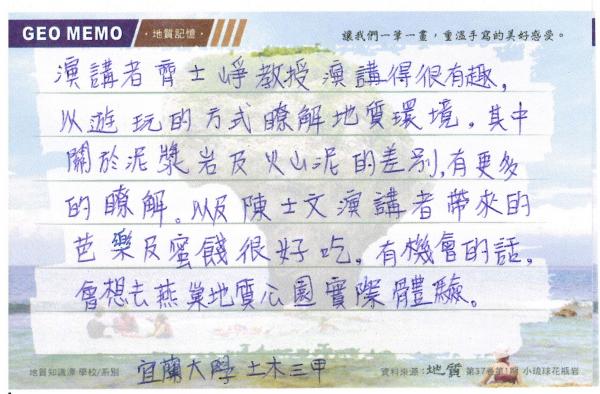 GEO MEMO
·地質記憶·
讓我們一筆一畫，重溫手寫的美好感受。
演講者齊士崢教授演講得很有趣，
以遊玩的方式瞭解地質環境。其中
關於泥漿岩及火山泥的差別，有更多
的瞭解。以及陳士文演講者帶來的
芭樂及蜜餞很好吃。有機會的話，
會想去燕巢地質公園實際體驗。
地質知識澤 學校/系別 宜蘭大學 土木三甲
資料來源：地質 第37卷第1期 小琉球花瓶岩